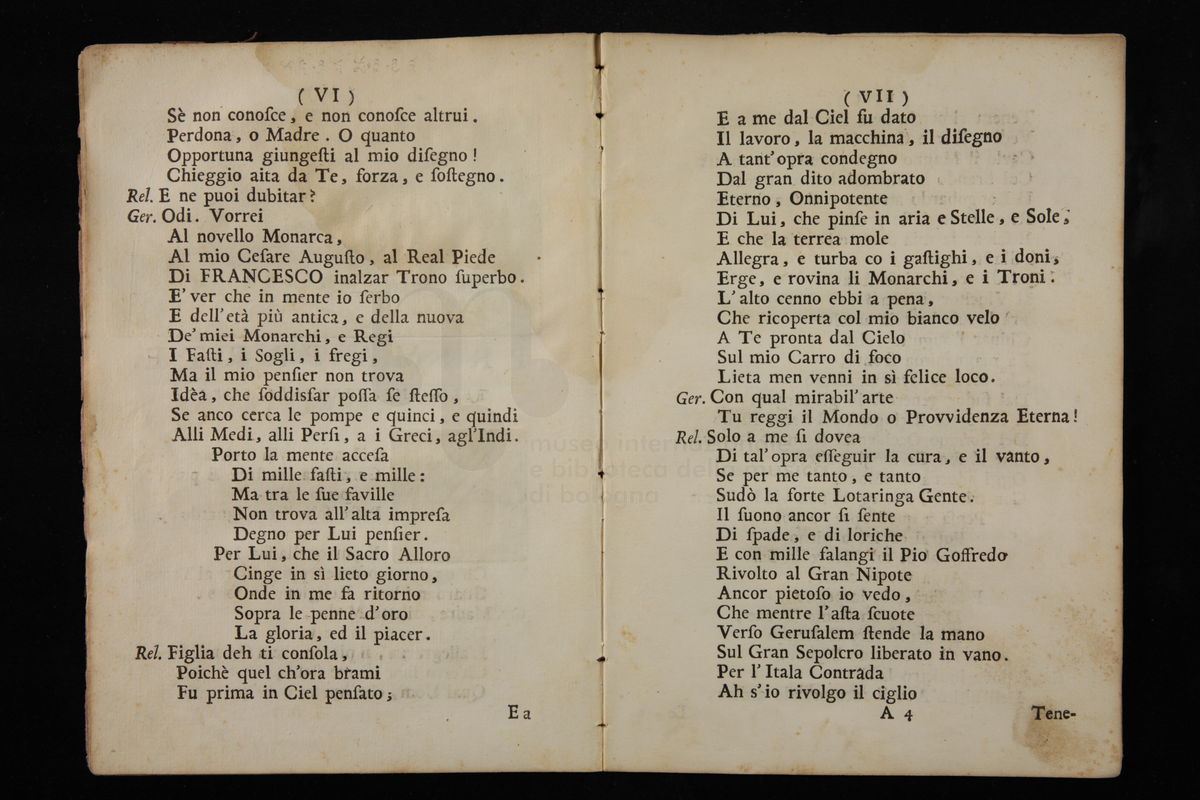 ( VI )
Sè non conoſce, e non conoſce altrui.
Perdona, o Madre. O quanto
Opportuna giungeſti al mio diſegno!
Chieggio aita da Te, forza, e ſoſtegno.
Rel. E ne puoi dubitar?
Ger. Odi. Vorrei
Al novello Monarca,
Al mio Ceſare Auguſto, al Real Piede
Di FRANCESCO inalzar Trono ſuperbo.
E' ver che in mente io ſerbo
E dell'età più antica, e della nuova
De' miei Monarchi, e Regi
I Faſti, i Sogli, i fregi,
Ma il mio penſier non trova
Idèa, che ſoddisfar poſſa ſe ſteſſo,
Se anco cerca le pompe e quinci, e quindi
Alli Medi, alli Perſi, a i Greci, agl'Indi.
Porto la mente acceſa
Di mille faſti, e mille:
Ma tra le ſue faville
Non trova all'alta impreſa
Degno per Lui penſier.
Per Lui, che il Sacro Alloro
Cinge in sì lieto giorno,
Onde in me fa ritorno
Sopra le penne d'oro
La gloria, ed il piacer.
Rel. Figlia deh ti conſola,
Poichè quel ch'ora brami
Fu prima in Ciel penſato;
E a
( VII )
E a me dal Ciel fu dato
Il lavoro, la macchina, il diſegno
A tant'opra condegno
Dal gran dito adombrato
Eterno, Onnipotente
Di Lui, che pinſe in aria e Stelle, e Sole,
E che la terrea mole
Allegra, e turba co i gaſtighi, e i doni,
Erge, e rovina li Monarchi, e i Troni.
L'alto cenno ebbi a pena,
Che ricoperta col mio bianco velo
A Te pronta dal Cielo
Sul mio Carro di foco
Lieta men venni in sì felice loco.
Ger. Con qual mirabil'arte
Tu reggi il Mondo o Provvidenza Eterna!
Rel. Solo a me ſi dovea
Di tal'opra eſſeguir la cura, e il vanto,
Se per me tanto, e tanto
Sudò la forte Lotaringa Gente.
Il ſuono ancor ſi ſente
Di ſpade, e di loriche
E con mille falangi il Pio Goffredo
Rivolto al Gran Nipote
Ancor pietoſo io vedo,
Che mentre l'aſta ſcuote
Verſo Geruſalem ſtende la mano
Sul Gran Sepolcro liberato in vano.
Per l'Itala Contrada
Ah s'io rivolgo il ciglio
A 4
Tene-